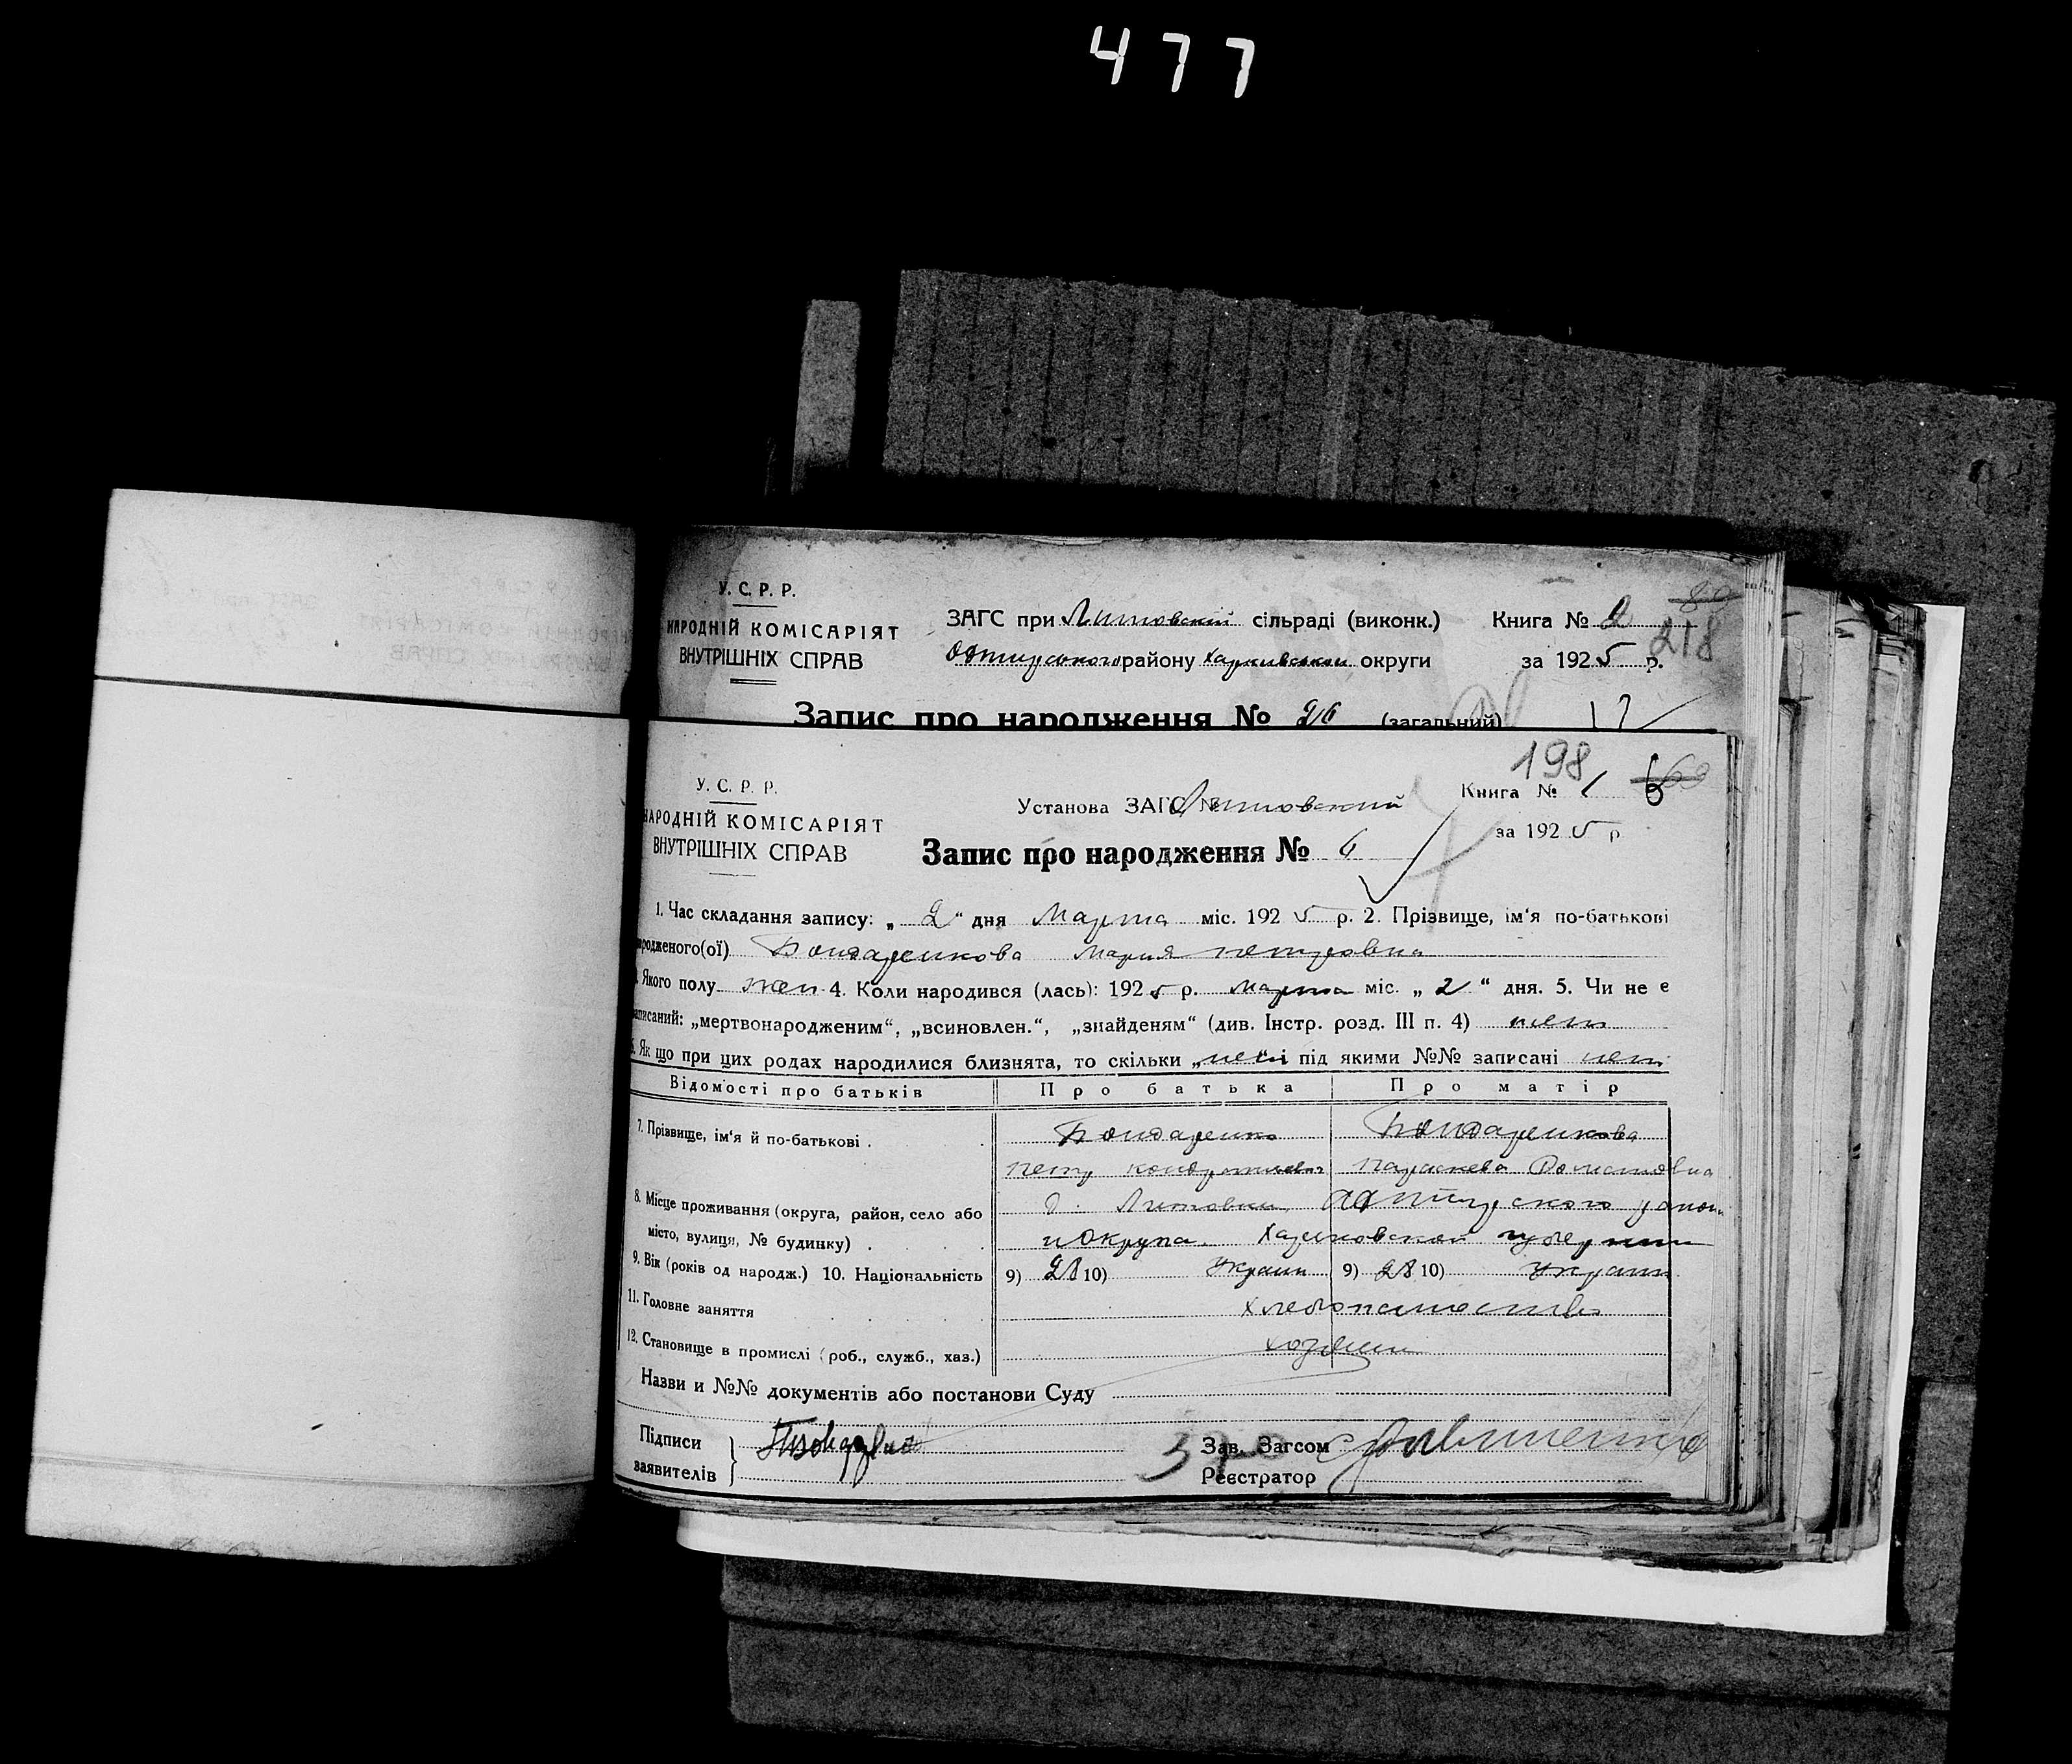 477
У. С. Р. Р.
НАРОДНІЙ КОМІСАРІЯТ
ВНУТРІШНІХ СПРАВ
ЗАГС при Литовскій сільраді (виконк.)
району Харкивскои округи
Книга № 2
80
218
за 1925 р.
Запис про народження № 26 (загальний) 17
У. С. Р. Р.
НАРОДНІЙ КОМІСАРІЯТ
ВНУТРІШНІХ СПРАВ
Установа ЗАГС № Литовский
198
Книга № 1
за 1925 р.
Запис про народження № 6
1. Час складання запису: „ 2 “ дня Марта міс. 1925 р. 2. Прізвище, ім‘я по-батькові
народженого(ої) Бондаренкова Мария петровна
Якого полу жен 4. Коли народився (лась): 1925 р. марта міс. „ 2 “ дня. 5. Чи не є
записаний: „мертвонародженим“, „всиновлен.“, „знайденям“ (див. Інстр. розд. III п. 4) нет
6. Як що при цих родах народилися близнята, то скільки „нет і під якими №№ записані нет
Відомості про батьків Про батька Про матір
7. Прізвище, ім‘я й по-батькові . Бондаренко Бондаренкова
петр кондратиевич параскева
8. Місце проживання (округа, район, село або
місто, вулиця, № будинку) . . .
Литовки
и округа. Харковской губернии
9. Вік (років од народж.) 10. Національність 9) 28 10) Украин 9) 28 10) Украин
11. Головне заняття Хлебопашество
12. Становище в промислі (роб., служб., хаз.) хозяин
Назви и №№ документів або постанови Суду
Підписи
заявителів
Зав. Загсом
Реєстратор